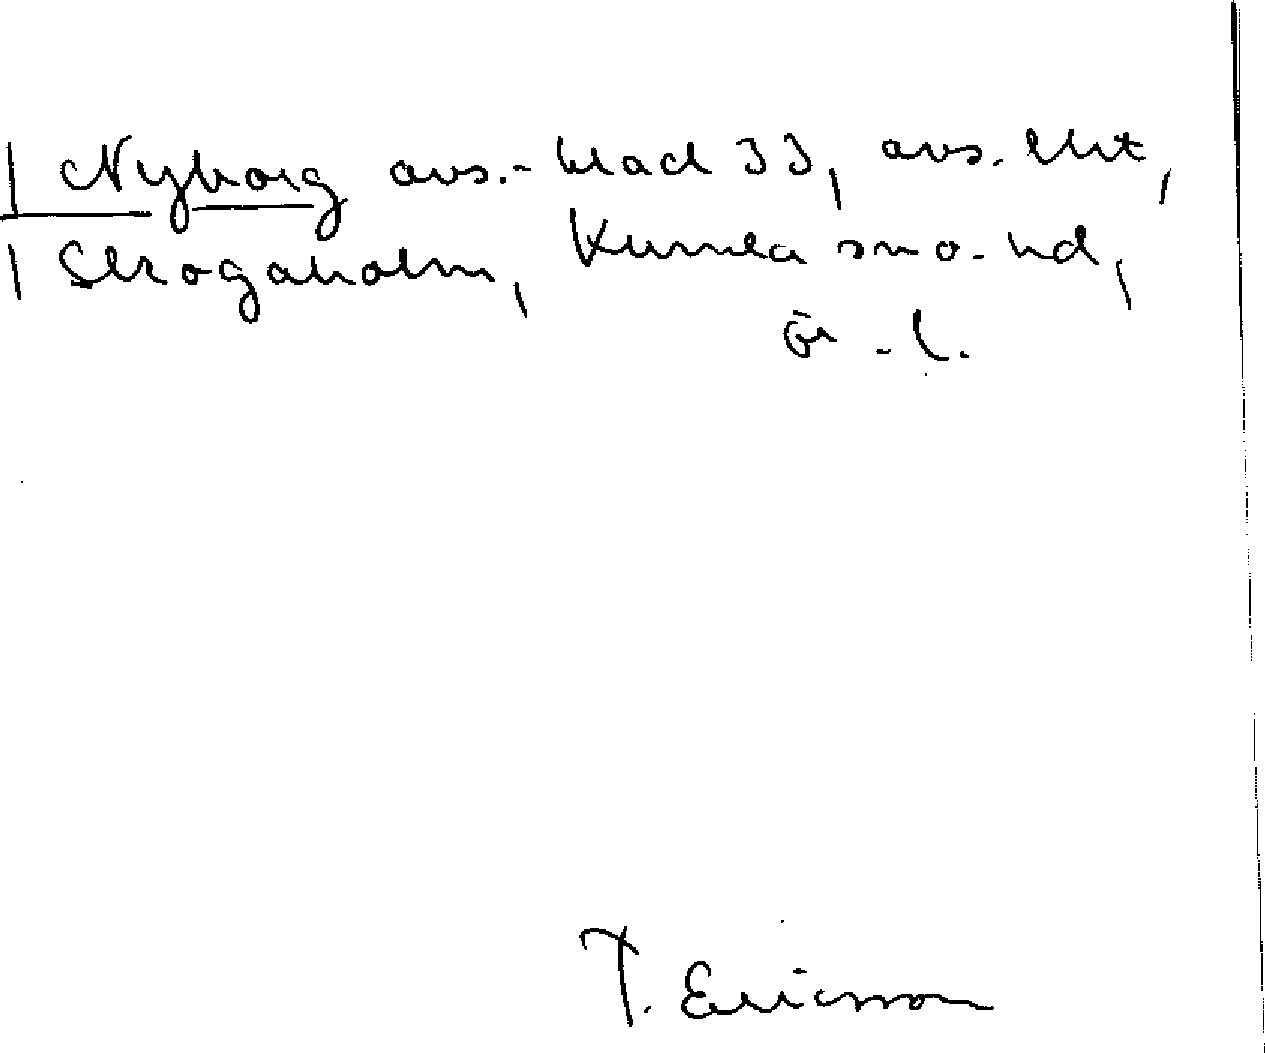 | Nyborg avs.-blad 33, avs. ekt,
| Skogaholm, Kumla sn o. hd,
ör. l.
T. Ericsson